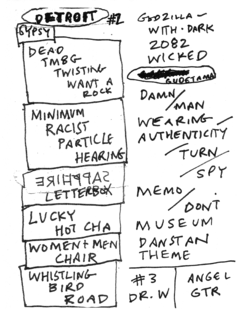 DETROIT #2
GYPSY
DEAD
TMBG
TWISTING
WANT A
ROCK
MINIMUM
RACIST
PARTICLE
HEARING
SAPPHIRE
LETTERBOX
LUCKY
HOT CHA
WOMEN + MEN
CHAIR
WHISTLING
BIRD
ROAD
GODZILLA-
WITH · DARK
2082
WICKED
GUDETAMA
DAMN/
MAN
WEARING/
AUTHENTICITY/
TURN/
SPY
MEMO/
DONT
MUSEUM
DANSTAN
THEME
#3
DR. W
ANGEL
GTR